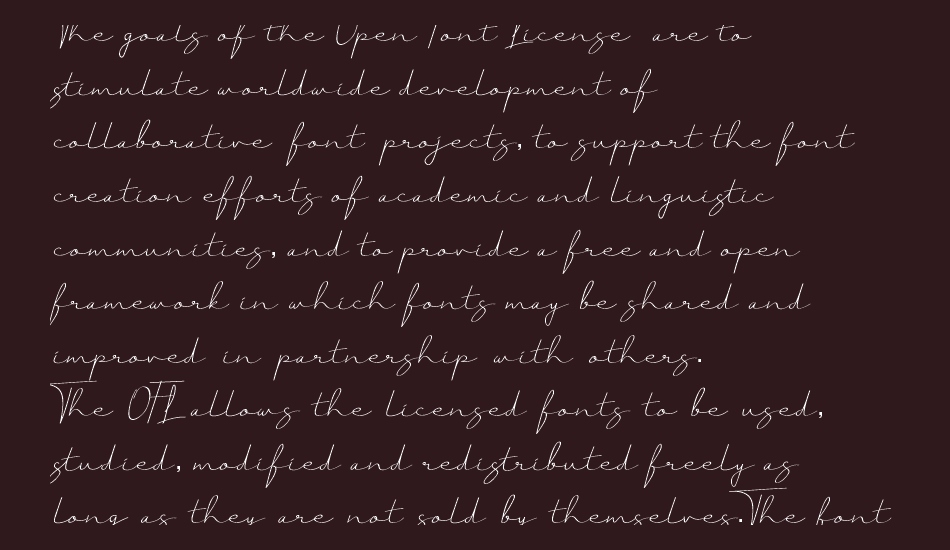 The goals of the Open Font License are to
stimulate worldwide development of
collaborative font projects, to support the font
creation efforts of academic and linguistic
communities, and to provide a free and open
framework in which fonts may be shared and
improved in partnership with others.
The OFL allows the licensed fonts to be used,
studied, modified and redistributed freely as
long as they are not sold by themselves.The font